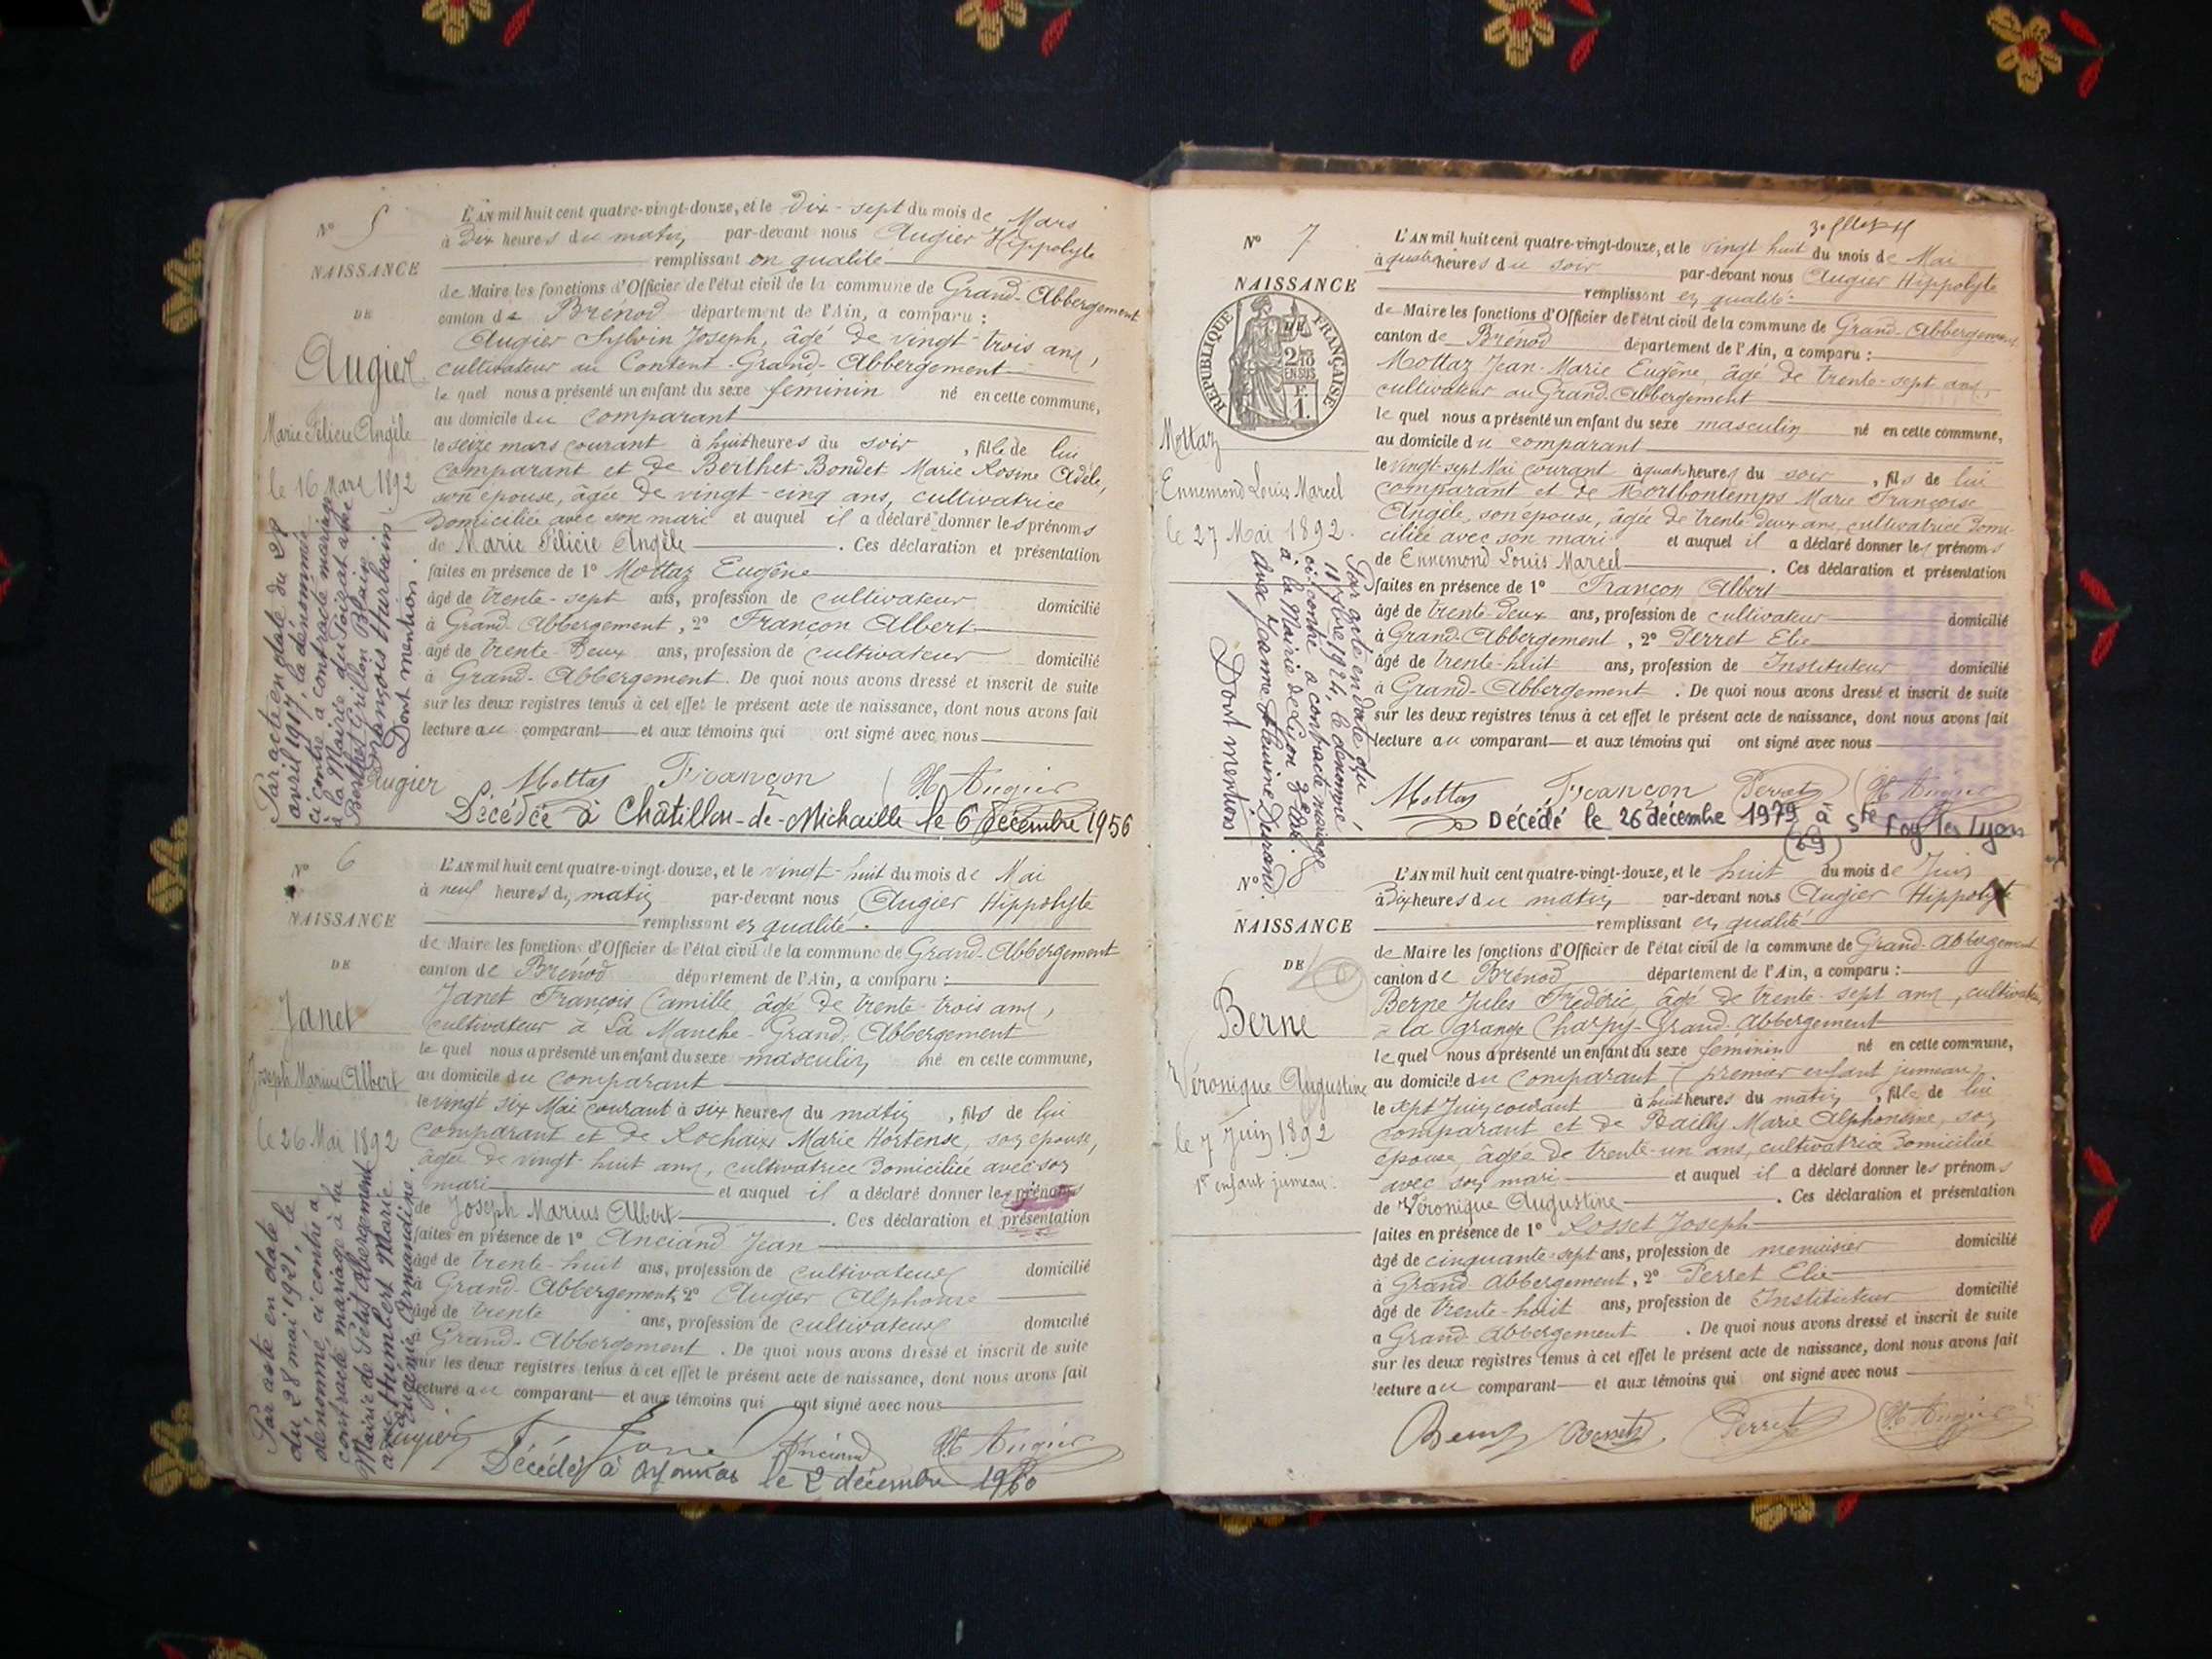 N° 5
NAISSANCE
DE
Augier
Marie Félicie Angèle
le 16 Mars 1892
Par acte en date du 28
avril 1917, la dénommée
ci contre a contracté mariage
à la Mairie du Poizat avec
Berthet Grillon Blaise
François Hurbain.
Dont mention.
L'AN mil huit cent quatre-vingt-douze, et le dix-sept du mois de Mars
à dix heures du matin par-devant nous Augier Hippolyte
remplissant en qualité
de Maire les fonctions d'Officier de l'état civil de la commune de Grand-Abbergement
canton de Brénod département de l'Ain, a comparu :
Augier Sylvin Joseph, âgé de vingt-trois ans,
cultivateur au Content-Grand-Abbergement
le quel nous a présenté un enfant du sexe feminin né en cette commune,
au domicile du comparant
le seize mars courant à huit heures du soir, fille de lui
comparant et de Berthet-Bondet Marie Rosine Adèle,
son épouse, âgée de vingt-cinq ans, cultivatrice
domiciliée avec son mari et auquel il a déclaré donner les prénoms
de Marie Félicie Angèle. Ces déclaration et présentation
faites en présence de 1° Mottaz Eugène
âgé de trente-sept ans, profession de cultivateur domicilié
à Grand-Abbergement, 2° Françon Albert
âgé de trente-deux ans, profession de cultivateur domicilié
à Grand-Abbergement. De quoi nous avons dressé et inscrit de suite
sur les deux registres tenus à cet effet le présent acte de naissance, dont nous avons fait
lecture au comparant et aux témoins qui ont signé avec nous
Augier Mottaz Françon H. Augier
Décédée à Châtillon-de-Michaille le 6 décembre 1956
N° 6
NAISSANCE
DE
Janet
Joseph Marius Albert
le 26 Mai 1892
Par acte en date
du 28 mai 1921, le
dénommé ci contre a
contracté mariage à la
Mairie de Petit Abergement
avec Humbert Marie
Eugénie Armandine.
L'AN mil huit cent quatre-vingt-douze, et le vingt-huit du mois de Mai
à neuf heures du matin par-devant nous Augier Hippolyte
remplissant en qualité
de Maire les fonctions d'Officier de l'état civil de la commune de Grand-Abbergement
canton de Brénod département de l'Ain, a comparu :
Janet François Camille âgé de trente-trois ans,
cultivateur à La Manche-Grand-Abbergement
le quel nous a présenté un enfant du sexe masculin né en cette commune,
au domicile du comparant
le vingt six Mai courant à six heures du matin, fils de lui
comparant et de Rochaix Marie Hortense, son épouse,
âgée de vingt-huit ans, cultivatrice domiciliée avec son
mari et auquel il a déclaré donner les prénoms
de Joseph Marius Albert. Ces déclaration et présentation
faites en présence de 1° Anciand Jean
âgé de trente-huit ans, profession de cultivateur domicilié
à Grand-Abbergement, 2° Augier Alphonse
âgé de trente ans, profession de cultivateur domicilié
à Grand-Abbergement. De quoi nous avons dressé et inscrit de suite
sur les deux registres tenus à cet effet le présent acte de naissance, dont nous avons fait
lecture au comparant et aux témoins qui ont signé avec nous
Augier Anciand H. Augier
Décédé à Oyonnax le 2 décembre 1960
N° 7
NAISSANCE
DE
RÉPUBLIQUE FRANÇAISE
2/10
EN SUS
F.
1.
Mottaz
Ennemond Louis Marcel
le 27 Mai 1892.
Par acte en date du
1924, le dénommé
ci contre a contracté mariage
à la Mairie de Lyon
avec Jeanne Fleurine Durand.
Dont mention
L'AN mil huit cent quatre-vingt-douze, et le vingt huit du mois de Mai
à quatre heures du soir par-devant nous Augier Hippolyte
remplissant en qualité
de Maire les fonctions d'Officier de l'état civil de la commune de Grand-Abbergement
canton de Brénod département de l'Ain, a comparu :
Mottaz Jean-Marie Eugène, âgé de trente-sept ans,
cultivateur au Grand-Abbergement
le quel nous a présenté un enfant du sexe masculin né en cette commune,
au domicile du comparant
le vingt-sept Mai courant à quatre heures du soir, fils de lui
comparant et de Montbontemps Marie Françoise
Angèle, son épouse, âgée de trente-deux ans, cultivatrice domi-
ciliée avec son mari et auquel il a déclaré donner les prénoms
de Ennemond Louis Marcel. Ces déclaration et présentation
faites en présence de 1° Françon Albert
âgé de trente-deux ans, profession de cultivateur domicilié
à Grand-Abbergement, 2° Perret Elie
âgé de trente-huit ans, profession de Instituteur domicilié
à Grand-Abbergement. De quoi nous avons dressé et inscrit de suite
sur les deux registres tenus à cet effet le présent acte de naissance, dont nous avons fait
lecture au comparant et aux témoins qui ont signé avec nous
Mottaz Françon Perret H. Augier
Décédé le 26 décembre 1979 à Ste Foy les Lyon
(69)
N°
NAISSANCE
DE
Berne
Véronique Augustine
le 7 Juin 1892
1er enfant jumeau.
L'AN mil huit cent quatre-vingt-douze, et le huit du mois de Juin
à dix heures du matin par-devant nous Augier Hippolyte
remplissant en qualité
de Maire les fonctions d'Officier de l'état civil de la commune de Grand-Abbergement
canton de Brénod département de l'Ain, a comparu :
Berne Jules Frédéric, âgé de trente-sept ans, cultivateur
à la grange Charpy-Grand-Abbergement
le quel nous a présenté un enfant du sexe feminin né en cette commune,
au domicile du comparant premier enfant jumeau
le sept Juin courant à huit heures du matin, fille de lui
comparant et de Bailly Marie Alphonsine, son
épouse, âgée de trente-un ans, cultivatrice domiciliée
avec son mari et auquel il a déclaré donner les prénoms
de Véronique Augustine. Ces déclaration et présentation
faites en présence de 1° Rosset Joseph
âgé de cinquante-sept ans, profession de menuisier domicilié
à Grand Abbergement, 2° Perret Elie
âgé de trente-huit ans, profession de Instituteur domicilié
à Grand-Abbergement. De quoi nous avons dressé et inscrit de suite
sur les deux registres tenus à cet effet le présent acte de naissance, dont nous avons fait
lecture au comparant et aux témoins qui ont signé avec nous
Berne Rosset Perret H. Augier